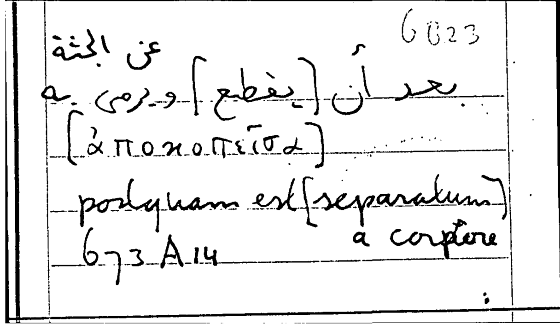 6023
عن الجثة
بعد أن [يقطع] ويرمى به
[ἀποκοπεῖσα]
postquam est [separatum]
a corpore
673 A 14